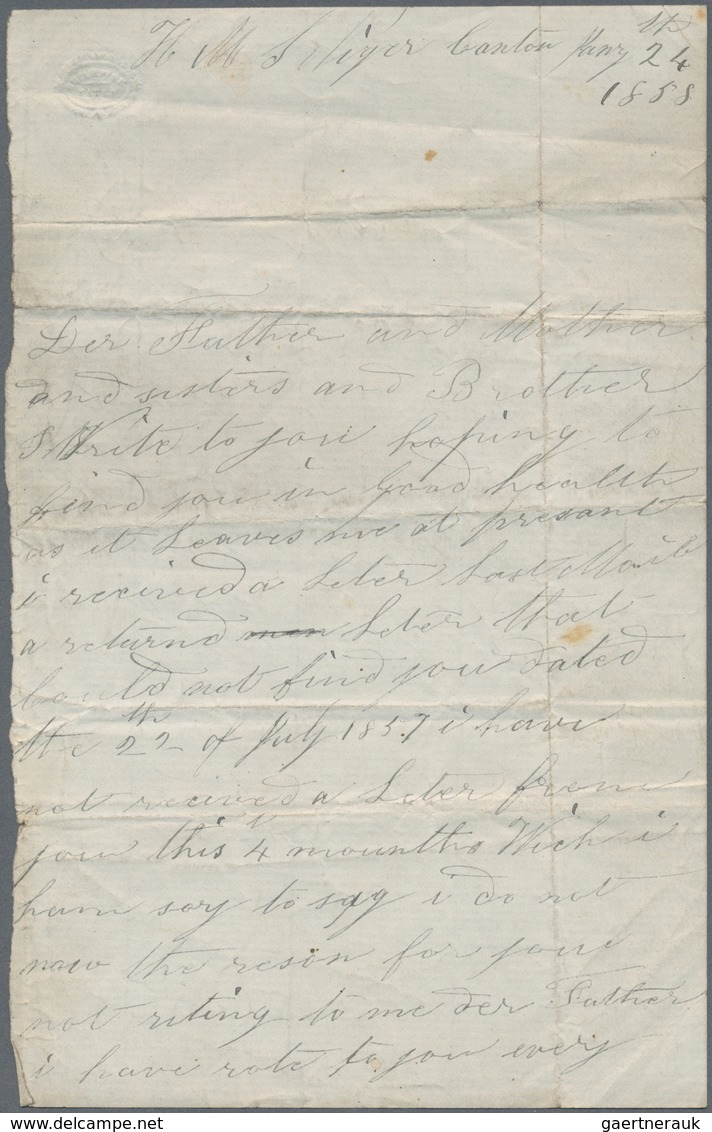 H M S Niger Canton Jany 24th
1858
Der Father and Mother
and sisters and Brother
I Write to you hoping to
find you in Good health
as it Leaves me at presant
i recived a Leter Last Mail
a returnd Leter that
Could not find you dated
the 22th of July 1857 i have
not recived a Leter from
you this 4 mounths Wich i
ham sory to say i do not
now the reson for your
not riting to me der Father
i have rote to you every
www.delcampe.net
gaertnerauk